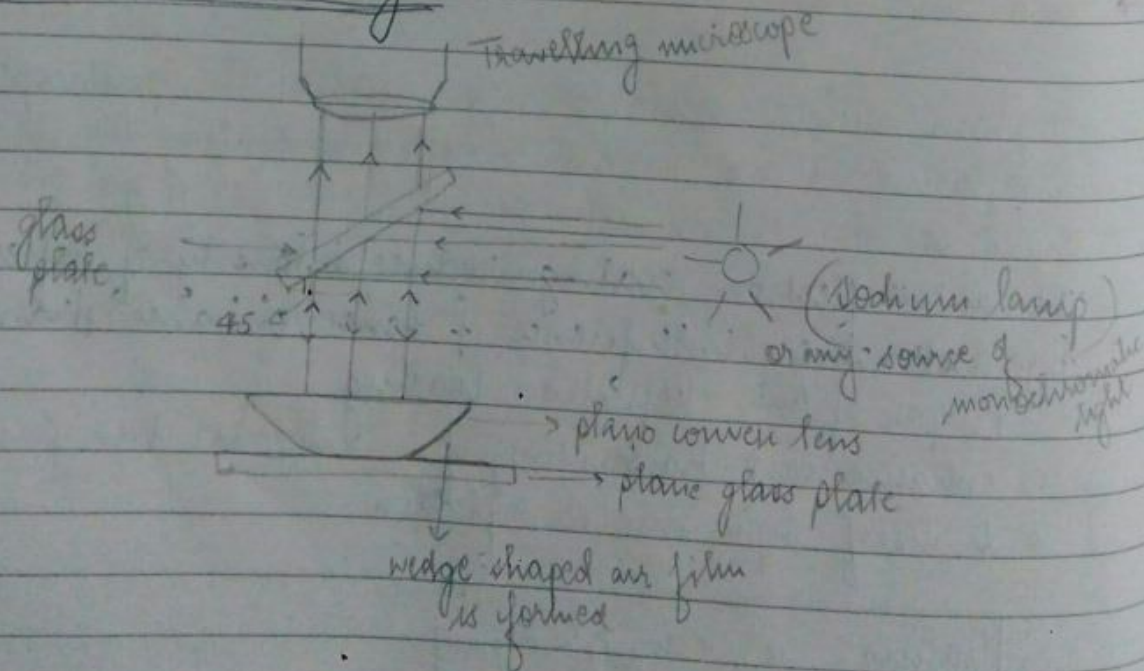 Travelling microscope
glass
plate.
45°
(sodium lamp)
or any source of
monochromatic
light
plano convex lens
plane glass plate
wedge shaped air film
is formed